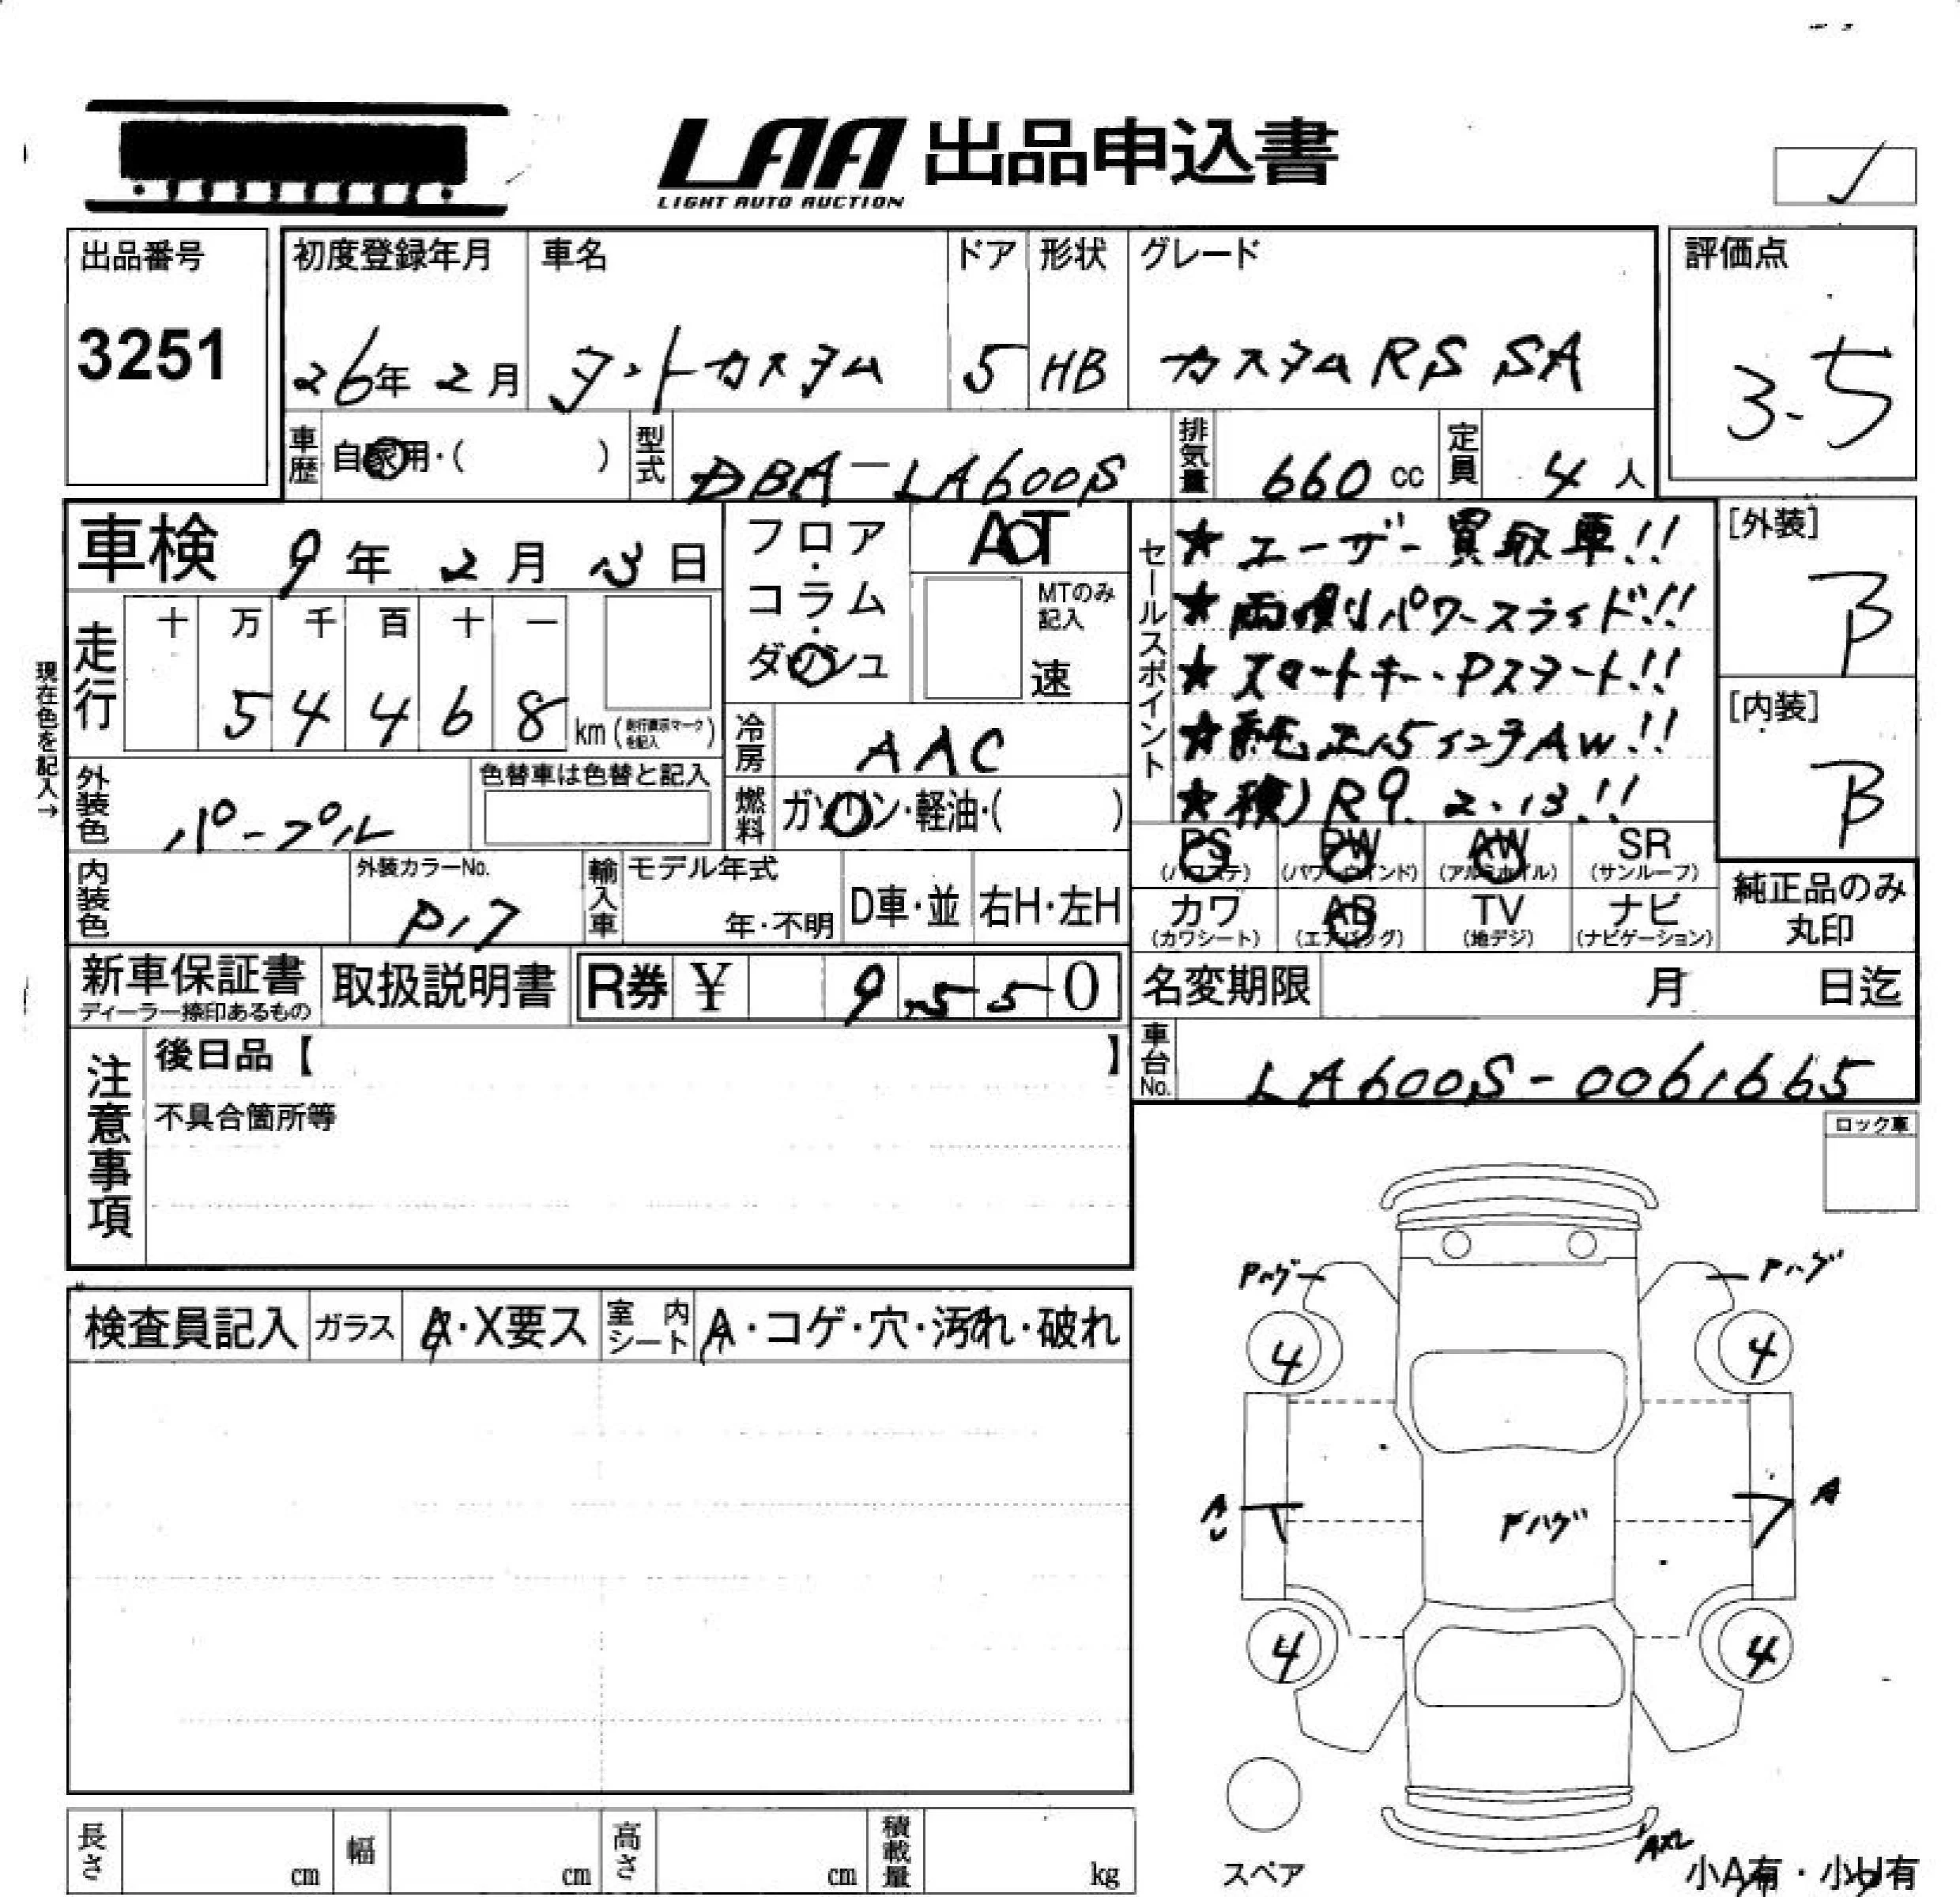 LAA 出品申込書
LIGHT AUTO AUCTION
出品番号
3251
初度登録年月
26年 2月
車名
タントカスタム
ドア
5
形状
HB
グレード
カスタムRS SA
評価点
3.5
車歴
自家用・( )
型式
DBA-LA600S
排気量
660 cc
定員
4 人
車検 9年 2月 13日
フロア・コラム・ダッシュ
AT
MTのみ記入
速
セールスポイント
★ユーザー買取車!!
★両側パワースライド!!
★スマートキー・Pスタート!!
★純正15インチAW!!
★検)R9.2.13!!
[外装]
B
[内装]
B
現在色を記入→
走行
十 万 千 百 十 一
5 4 4 6 8 km (走行表示マークを記入)
冷房
AAC
外装色
パープル
色替車は色替と記入
燃料
ガソリン・軽油・( )
PS PW AW SR
(パワステ) (パワーウインド) (アルミホイル) (サンルーフ)
カワ AB TV ナビ
(カワシート) (エアバッグ) (地デジ) (ナビゲーション)
純正品のみ丸印
内装色
外装カラーNo.
P17
輸入車
モデル年式
年・不明
D車・並
右H・左H
新車保証書
ディーラー捺印あるもの
取扱説明書
R券 ¥ 9550
名変期限 月 日迄
注意事項
後日品【 】
不具合箇所等
車台No.
LA600S-0061665
ロック車
検査員記入
ガラス
A・X要ス
室内シート
A・コゲ・穴・汚れ・破れ
Pハゲ
Pハゲ
4
4
A
U
Pハゲ
A
4
4
AX2
スペア
小A有・小U有
長さ cm
幅 cm
高さ cm
積載量 kg